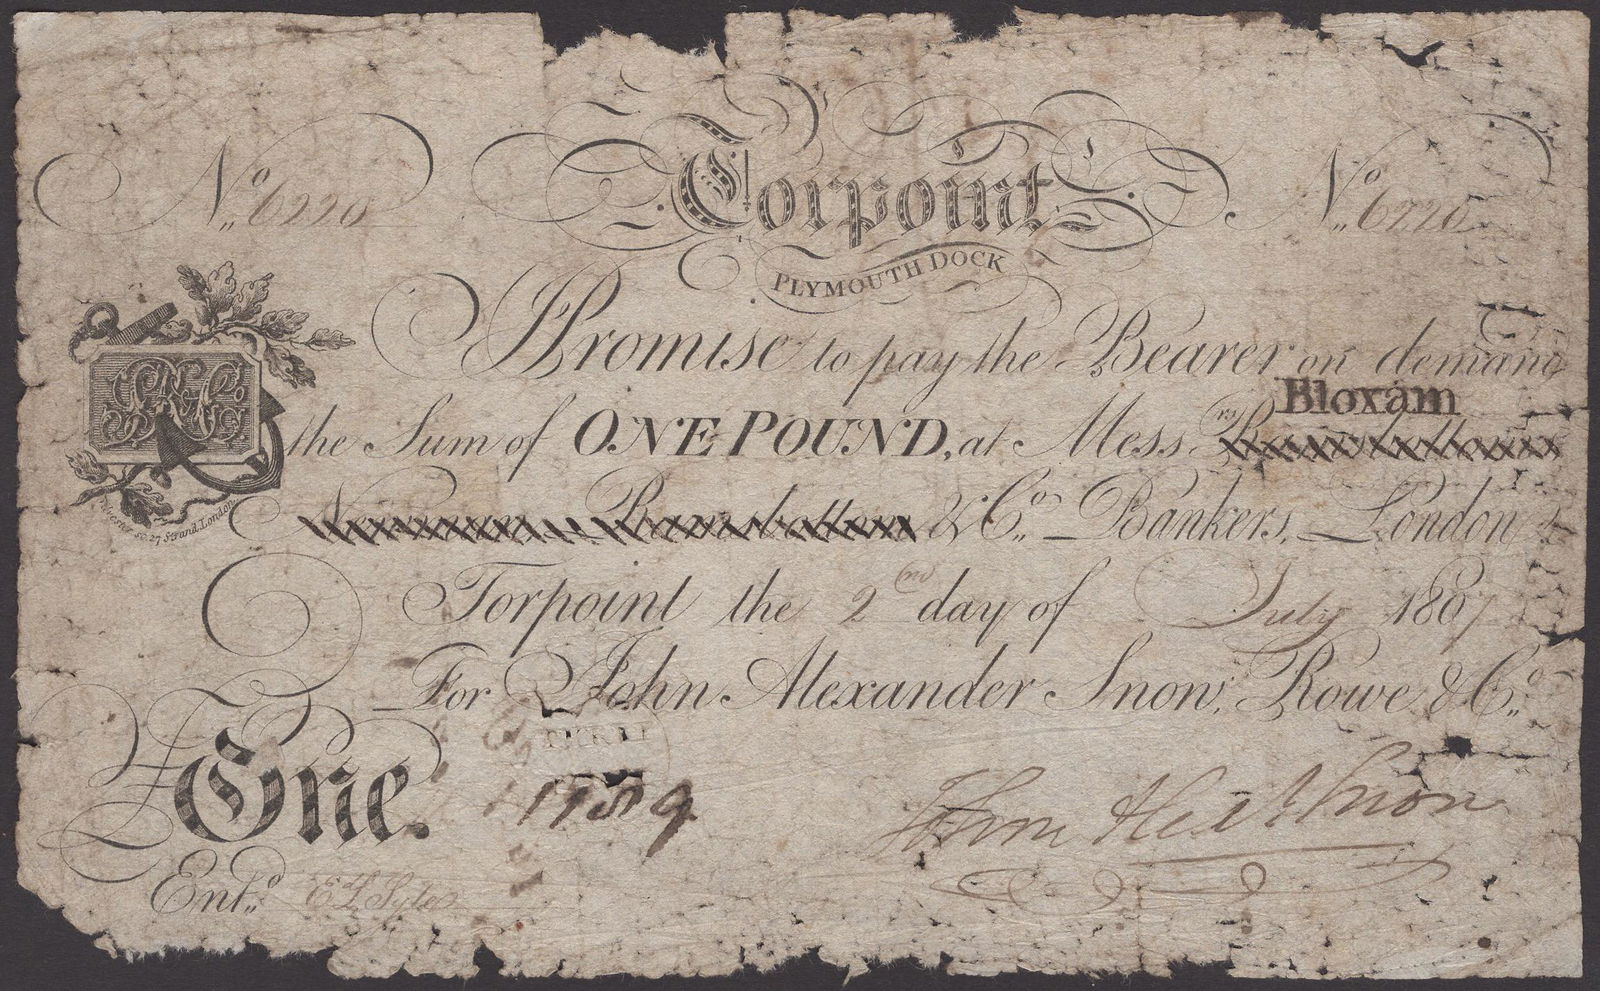 No. 6220 No. 6220
Torpoint
PLYMOUTH DOCK
I Promise to pay the Bearer on demand
Bloxam
the Sum of ONE POUND, at Messrs.
& Co. Bankers, London
27 Strand, London
Torpoint the 2nd day of July 1807
For John Alexander Snow, Rowe & Co.
One.
John Alexr Snow
Entd.